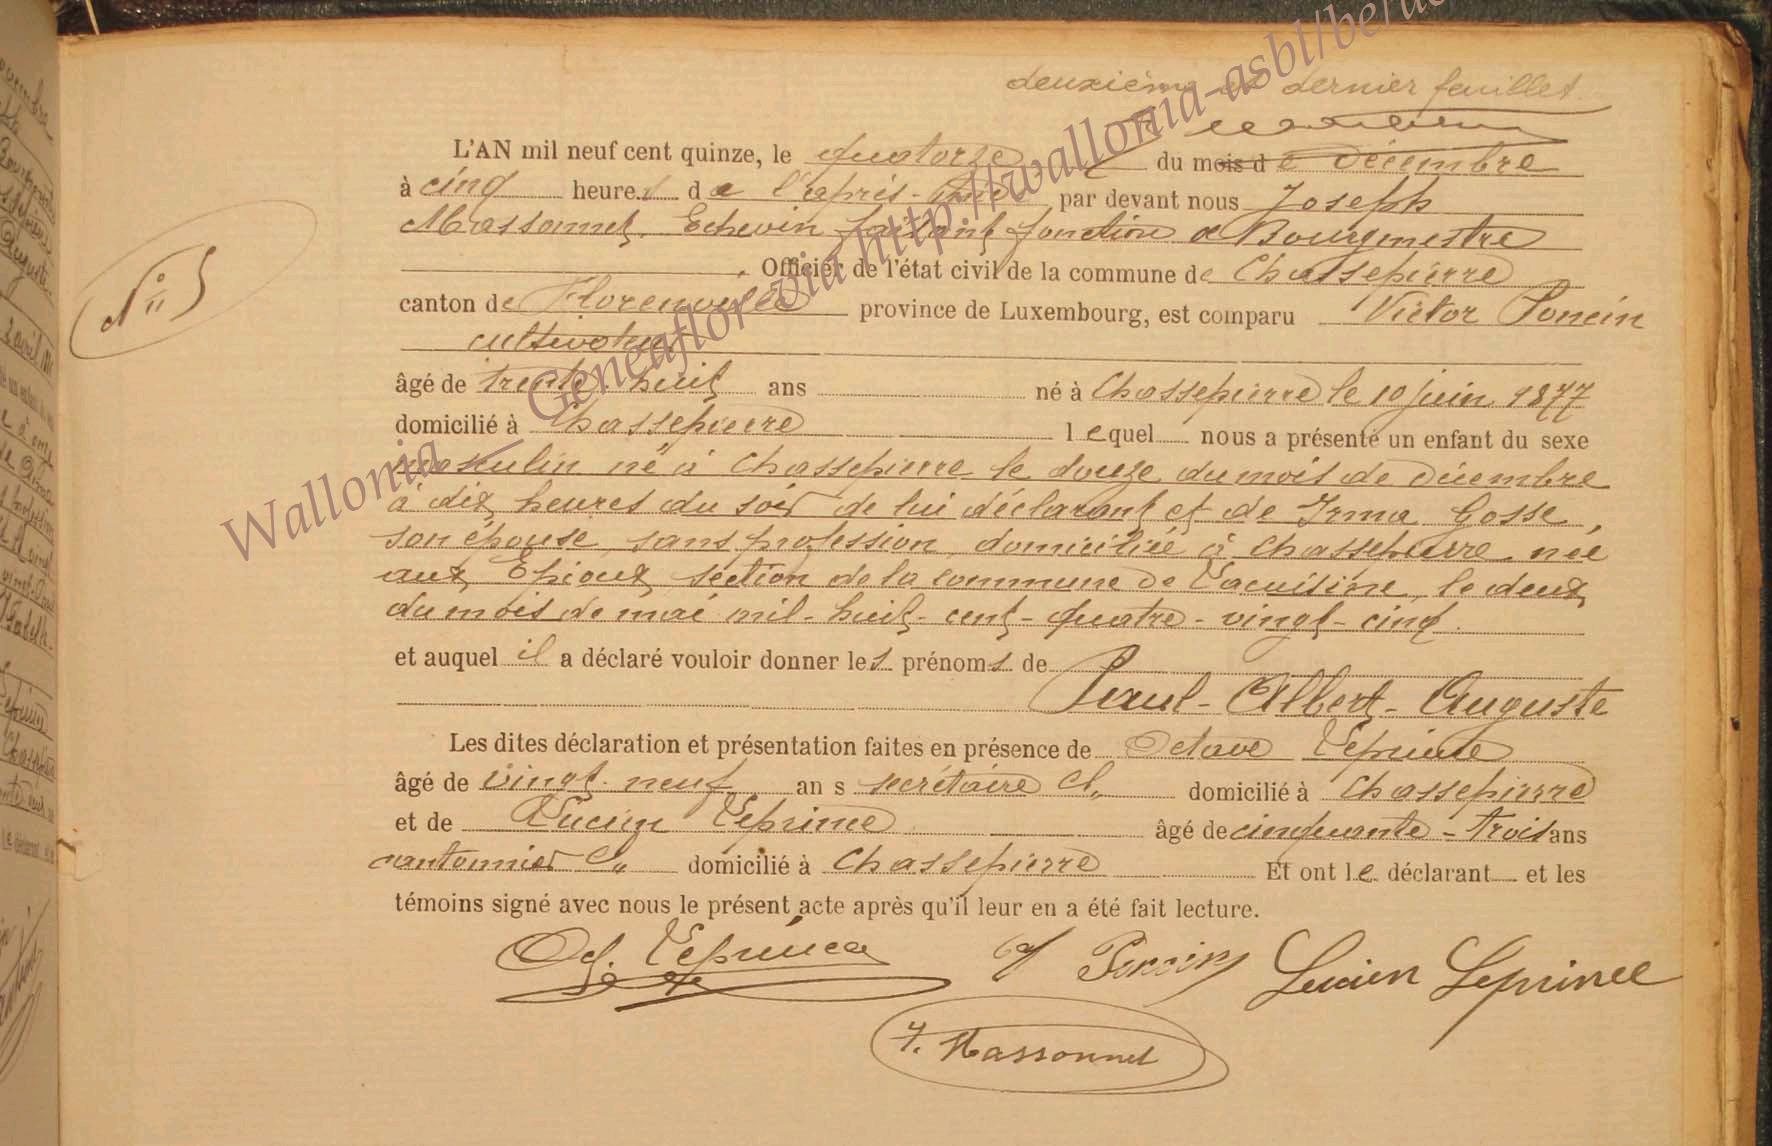 deuxième et dernier feuillet.
L'AN mil neuf cent quinze, le quatorze du mois de Décembre
à cinq heures de l'après-midi par devant nous Joseph
Massonnet, Echevin faisant fonction de Bourgmestre
Officier de l'état civil de la commune de Chassepierre
N° 5
canton de Florenville province de Luxembourg, est comparu Victor Poncin
cultivateur
âgé de trente-huit ans né à Chassepierre le 10 juin 1877
domicilié à Chassepierre lequel nous a présenté un enfant du sexe
masculin né à Chassepierre le douze du mois de Décembre
à dix heures du soir de lui déclarant et de Irma Gosse,
son épouse, sans profession, domiciliée à Chassepierre, née
aux Epioux, section de la commune de Lacuisine, le deux
du mois de mai mil-huit-cent-quatre-vingt-cinq.
et auquel il a déclaré vouloir donner les prénoms de
Paul-Albert-Auguste
Les dites déclaration et présentation faites en présence de Octave Leprince
âgé de vingt-neuf ans secrétaire Cl domicilié à Chassepierre
et de Lucien Leprince âgé de cinquante-trois ans
cantonnier Cl domicilié à Chassepierre Et ont le déclarant et les
témoins signé avec nous le présent acte après qu'il leur en a été fait lecture.
Oct. Leprince V Poncin Lucien Leprince
J. Massonnet
Wallonia _ Geneaflor via http://wallonia-asbl/be/